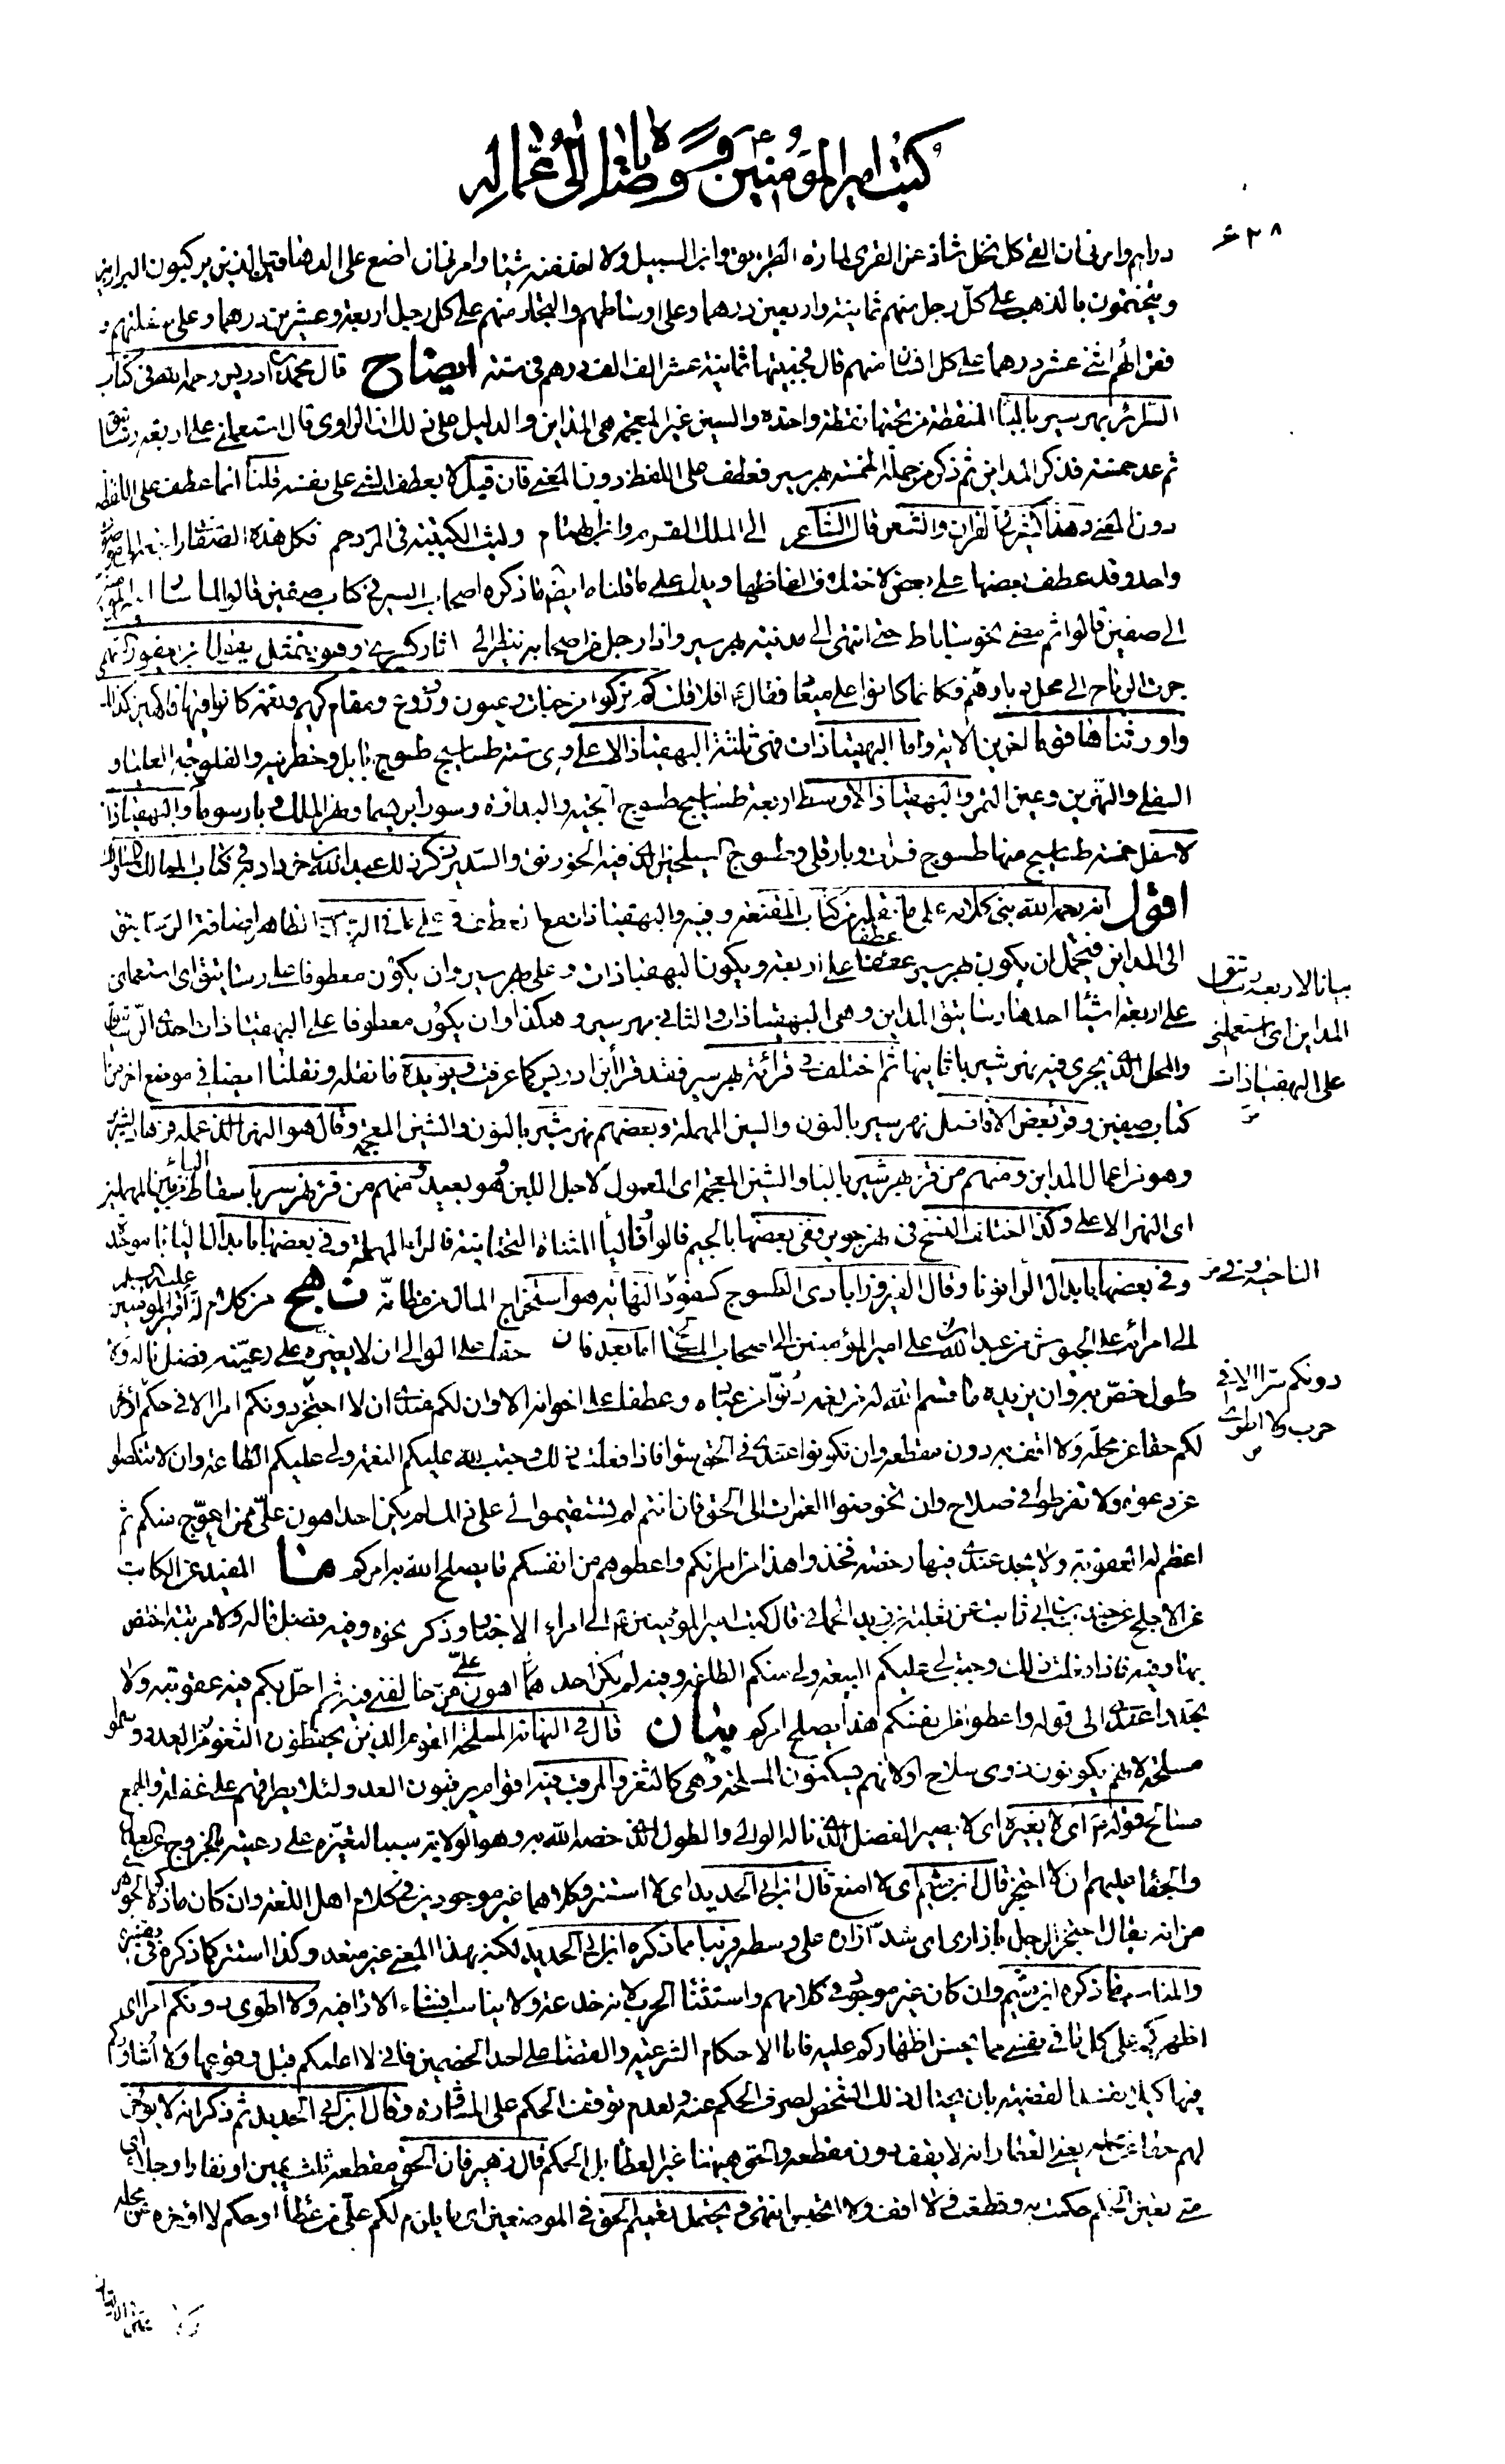 كتب امير المؤمنين ع ووصاياه الى عماله
دراهم وامرني ان القي كل نخل شاذ عن القرى لمارة الطريق وابن السبيل ولا اخذ منه شيئا وامرني ان اضع على الدهاقين الذين يركبون البراذين
ويتختمون بالذهب على كل رجل منهم ثمانية واربعين درهما وعلى اوساطهم والتجار منهم على كل رجل اربعة وعشرين درهما وعلى سفلتهم و
فقرائهم اثنى عشر درهما على كل انسان منهم قال فجبيتها ثمانية عشر الف الف درهم في سنة ايضاح قال محمد بن ادريس رحمه الله في كتاب
السرائر بهرسير بالباء المنقطة من تحتها نقطة واحدة والسين غير المعجمة هي المداين والدليل على ذلك ان الراوي قال استعملني على اربعة رساتيق
ثم عد خمسة فذكر المداين ثم ذكر من جملة الخمسة بهرسير فعطف على اللفظ دون المعنى فان قيل لا يعطف الشيء على نفسه قلنا انما عطف على اللفظ
دون المعنى وهذا كثير في القرآن والشعر قال الشاعر الى الملك القرم وابن الهمام وليث الكتيبة في المزدحم فكل هذه الصفات راجعة الى موصوف
واحد وقد عطف بعضها على بعض لاختلاف الفاظها ويدل على ما قلناه ايضا ما ذكره اصحاب السير في كتاب صفين قالوا لما سار امير المؤمنين
الى صفين قالوا ثم مضى نحو ساباط حتى انتهى الى مدينة بهرسير واذا رجل من اصحابه ينظر الى اثار كسرى وهو يتمثل بقول ابن يعفور التميمي
جرت الرياح الى محل ديارهم فكانما كانوا على ميعاد فقال ع افلا قلت كم تركوا من جنات وعيون وزروع ومقام كريم ونعمة كانوا فيها فاكهين كذلك
واورثناها قوما اخرين الاية واما البهقباذات فهي ثلثة البهقباذ الاعلى وهي ستة طساسيج طسوج بابل وخطرنية والفلوجة العليا و
السفلى والنهرين وعين التمر والبهقباذ الاوسط اربعة طساسيج طسوج الجبة والبداة وسورا بربيسما ونهر الملك وبارسوما والبهقباذ
لاسفل خمسة طساسيج منها طسوج فرات وبادقلى وطسوج السيلحين الذي فيه الخورنق والسدير ذكر ذلك عبيد الله بن خرداد به في كتاب الممالك والمسالك
اقول انه رحمه الله بنى كلامه على ما نقله من كتاب المقنعة وفيه والبهقباذات معا الظاهر اضافة الرساتيق
الى المداين فيحتمل ان يكون بهرسير عطفا على اربعة ويكون البهقباذات وعلى بهرسير وان يكون معطوفا على رساتيق اى استعملني
على اربعة اشياء احدها رساتيق المداين وهي البهقباذات والثاني بهرسير وهكذا وان يكون معطوفا على البهقباذات احدى الرساتيق
والمحل الذي يجري فيه نهر شير باثانيها ثم اختلف في قرائة بهرسير فقد قرأ ابن ادريس كما عرفت ويؤيده ما نقله ونقلنا ايضا في موضع اخر من
كتاب صفين وقرء بعض الافاضل نهرسير بالنون والسين المهملة وبعضهم نهرشير بالنون والشين المعجمة وقال هو النهر الذي عمله فرهاد لشيرين
وهو من اعمال المداين ومنهم من قرء بهرشير بالباء والشين المعجمة اى المعمول لاجل اللبن وهو بعيد ومنهم من قرء نهرسر باسقاط الياء من بين المهملتين
اى النهر الاعلى وكذا اختلف النسخ في نهر جوير ففي بعضها بالجيم فالواو فالياء المثناة التحتانية فالراء المهملة وفي بعضها بابدال الياء باء موحدة
وفي بعضها بابدال الراء نونا وقال الفيروزابادي الطسوج كسفود الناحية وفي النهاية هو استخراج المال من مظانه نهج من كلام له امير المؤمنين عليه السلم
الى امرائه على الجيوش من عبد الله علي امير المؤمنين الى اصحاب المسالح اما بعد فان حقا على الوالي ان لا يغيره على رعيته فضل ناله ولا
طول خص به وان يزيده ما قسم الله له من نعمه دنوا من عباده وعطفا على اخوانه الا وان لكم عندي ان لا احتجز دونكم امرا الا في حكم ولا اؤخر
لكم حقا عن محله ولا اقف به دون مقطعه وان تكونوا عندي في الحق سواء فاذا فعلت ذلك وجبت لله عليكم النعمة ولي عليكم الطاعة وان لا تنكصوا
عن دعوة ولا تفرطوا في صلاح وان تخوضوا الغمرات الى الحق فان انتم لم تستقيموا لي على ذلك لم يكن احد اهون علي ممن اعوج منكم ثم
اعظم له العقوبة ولا يجد عندي فيها رخصة فخذوا هذا من امرائكم واعطوهم من انفسكم ما يصلح الله به امركم ما المفيد عن الكاتب
عن الاجلح عن حبيب بن ابي ثابت عن ثعلبة بن يزيد الحماني قال كتب امير المؤمنين ع الى امراء الاجناد وذكر نحوه وفيه فضل ناله ولا مرتبة اختص
بها وفيه فاذا فعلت ذلك وجبت لي عليكم البيعة ولي منكم الطاعة وفيه لم يكن احد اهون علي ممن خالفني فيه ثم احل بكم فيه عقوبته ولا
تجدوا عندي الى قوله واعطوا من انفسكم هذا يصلح امركم بيان قال في النهاية المسلحة القوم الذين يحفظون الثغور من العدو وسموا
مسلحة لانهم يكونون ذوي سلاح او لانهم يسكنون المسلحة وهي كالثغر والمرقب فيه اقوام يرقبون العدو لئلا يطرقهم على غفلة والجمع
مسالح قوله ع اى لا يغيره اى لا يصير الفضل الذي ناله الوالي والطول الذي خصه الله به وهو الولاية سببا لتغيره على رعيته بالخروج عن العدل
والجفاء عليهم ان لا احتجز قال ابن ميثم اى لا امنع قال ابن ابي الحديد اى لا استتر وكلاهما غير موجودين في كلام اهل اللغة وان كان ما ذكره الجوهري
من انه يقال احتجز الرجل بازاري اى شد ازاره على وسطه قريبا مما ذكره ابن ابي الحديد لكنه بهذا المعنى غير متعد وكذا استتر كما ذكره في تفسيره
والمناسب ما ذكره ابن ميثم وان كان غير موجود في كلامهم واستثناء الحرب لانه خدعة ولا يناسب افشاء الاراضيه ولا اطوى دونكم امرا اى
اظهركم على كل ما في نفسي مما يحسن اظهاركم عليه فاما الاحكام الشرعية والقضاء على احد الخصمين فاني لا اعلمكم قبل وقوعها ولا اشاوركم
فيها كيلا تفسد القضية بان يحتال ذلك الشخص لصرف الحكم عنه ولعدم توقف الحكم على المشاورة وقال ابن ابي الحديد ثم ذكر انه لا يؤخر
لهم حقا عن محله يعنى العطاء وانه لا يقف دون مقطعه والحق هيهنا غير العطاء بل الحكم قال زهير فان الحق مقطعه ثلث يمين او نفار او جلاء اى
متى تعين الحكم حكمت به وقطعت ولا اقف ولا اتحبس انتهى ويحتمل تعميم الحق في الموضعين اى ما يلزم لكم علي من عطاء او حكم لا اؤخره عن محله
بيانا لاربعة رساتيق
المداين اى استعملني
على البهقباذات
الناحية وفي
دونكم سرا الا في
حرب ولا اطوى